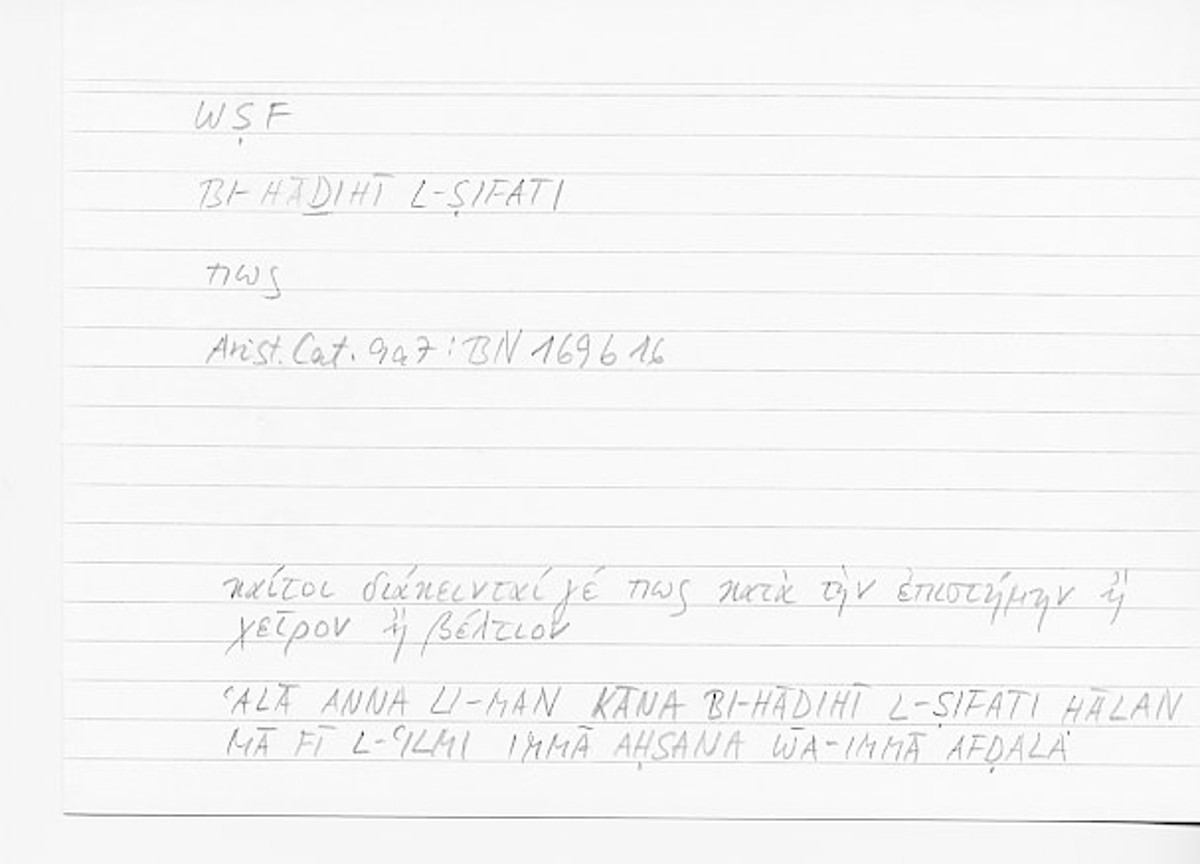 WṢF
BI-HĀḎIHĪ L-ṢIFATI
πως
Arist. Cat. 9a7 : BN 169b16
καίτοι διάκεινταί γέ πως κατὰ τὴν ἐπιστήμην ἢ
χεῖρον ἢ βέλτιον
ʿALĀ ANNA LI-MAN KĀNA BI-HĀDIHĪ L-ṢIFATI HĀLAN
MĀ FĪ L-ʿILMI IMMĀ AḤSANA WA-IMMĀ AFḌALA